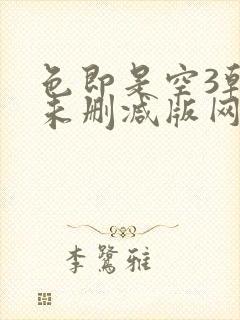 色即是空3韩
未删减版网
李鹭雅